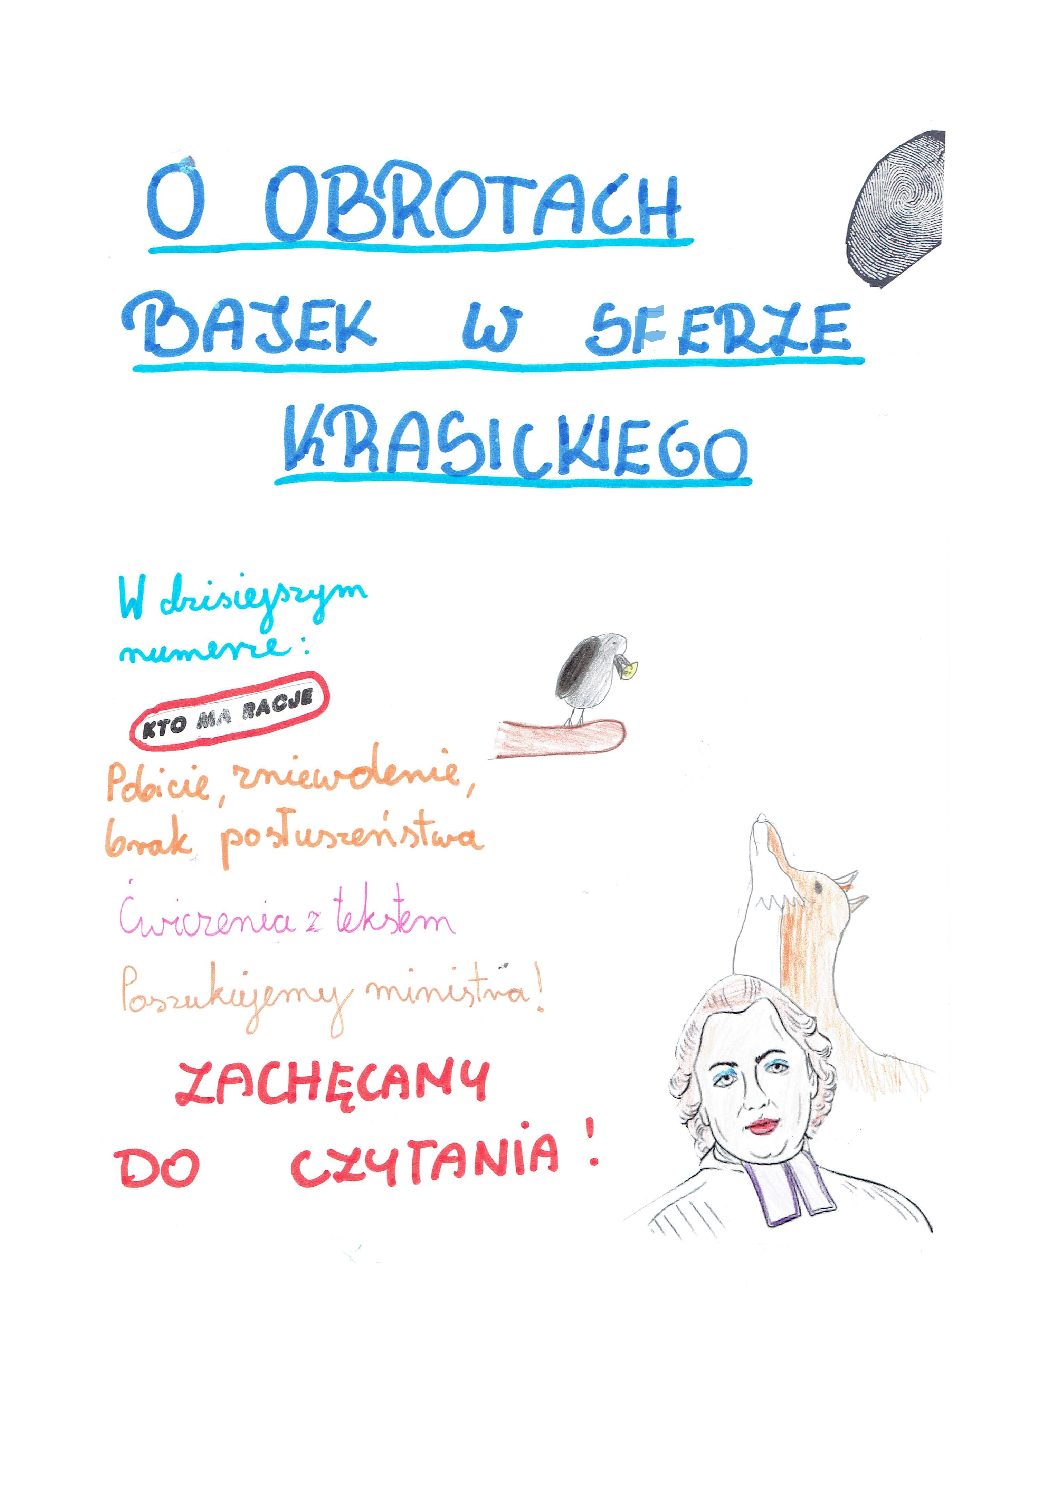 O OBROTACH
BAJEK W SFERZE
KRASICKIEGO
W dzisiejszym
numerze:
KTO MA RACJE
Pobicie, zniewolenie,
brak posłuszeństwa
Ćwiczenia z tekstem
Poszukujemy ministra!
ZACHĘCAMY
DO CZYTANIA!